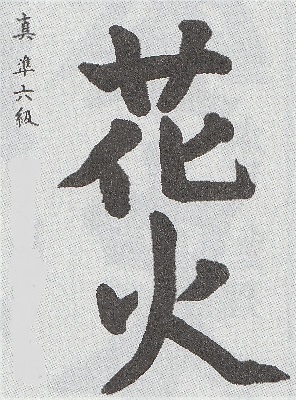 花火
真準六級